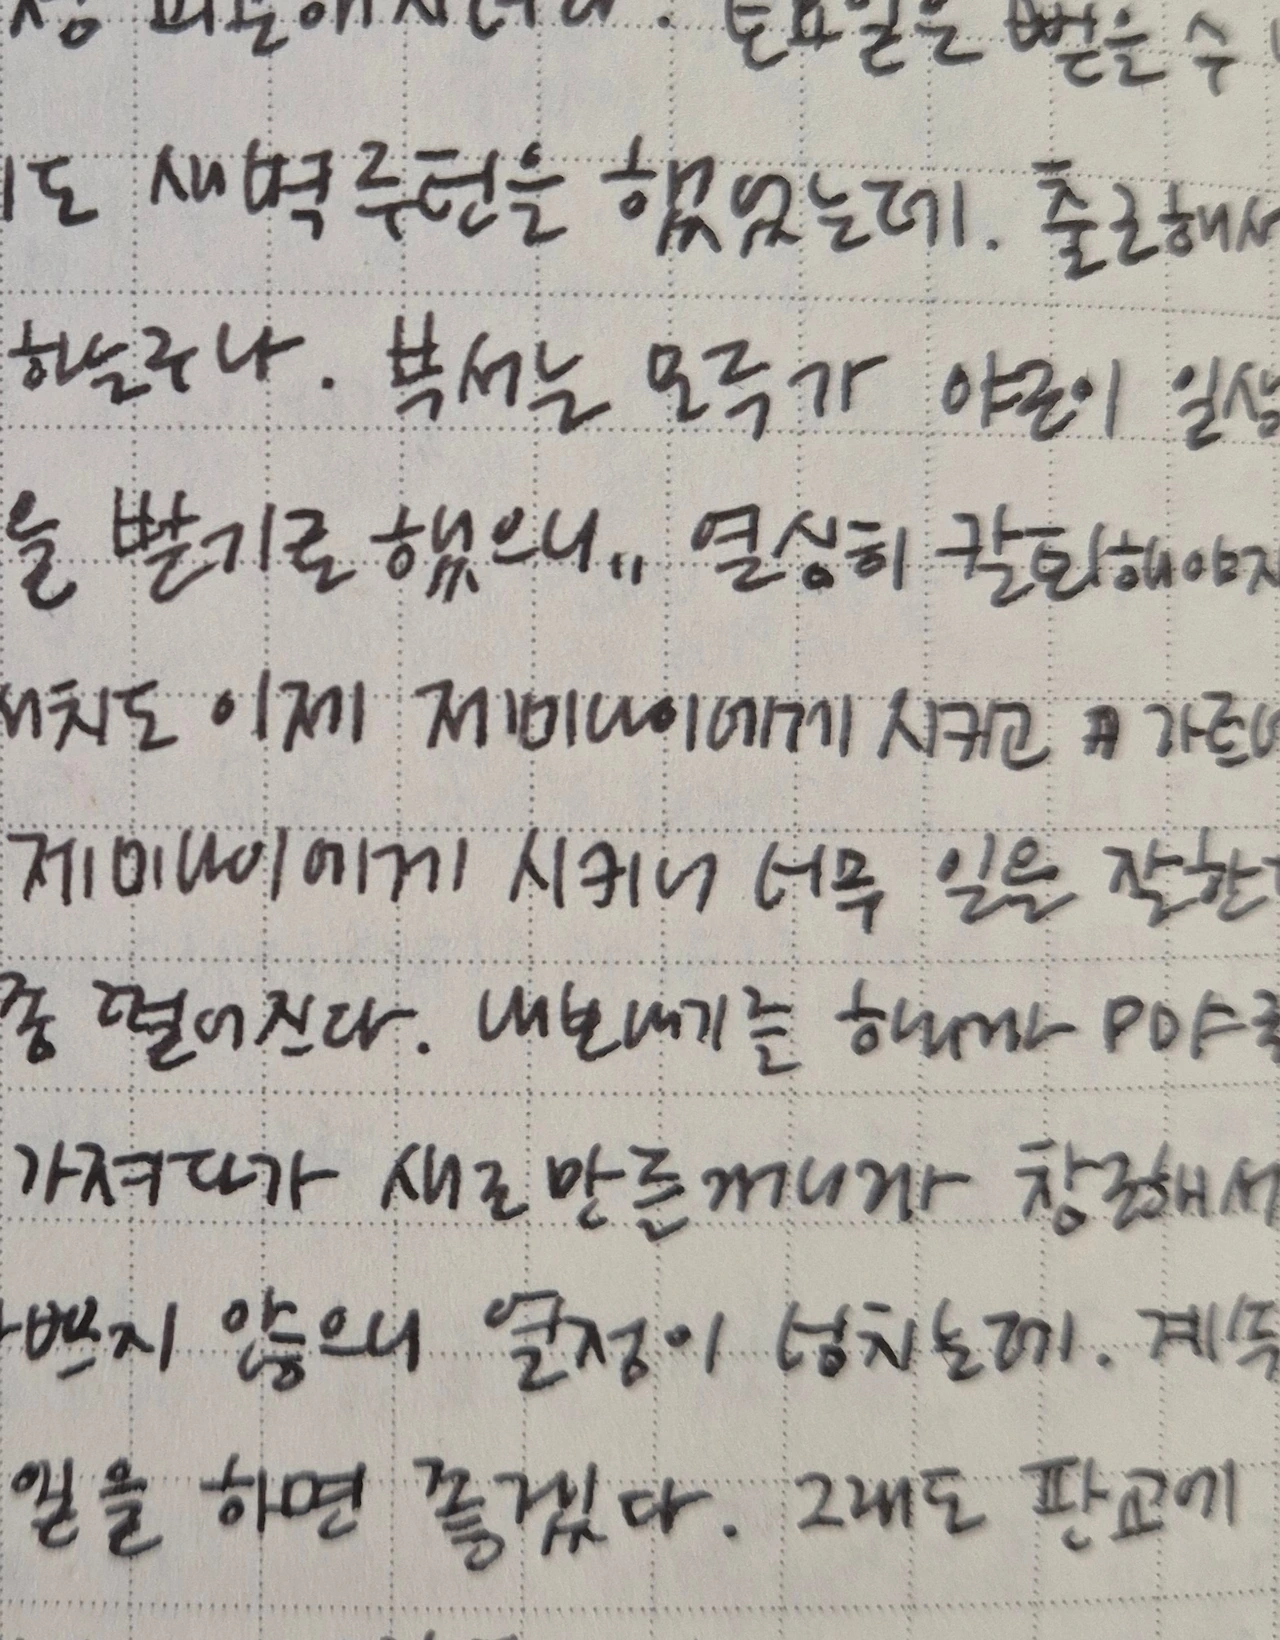 토요일은 뻗을 수
도 새벽루틴을 했었는데. 출근해서
하는구나. 부서는 모두가 야근이 일상
을 받기로 했으니.. 열심히 칼퇴해야지
서치도 이제 제미나이에게 시키고 가르
제미나이에게 시키니 너무 일을 잘한
좀 떨어진다. 내보내기를 하니까 PDF로
가져다가 새로 만든거니까 참고해서
바쁘지 않으니 열정이 넘치는데. 계속
일을 하면 좋겠다. 그래도 판교에